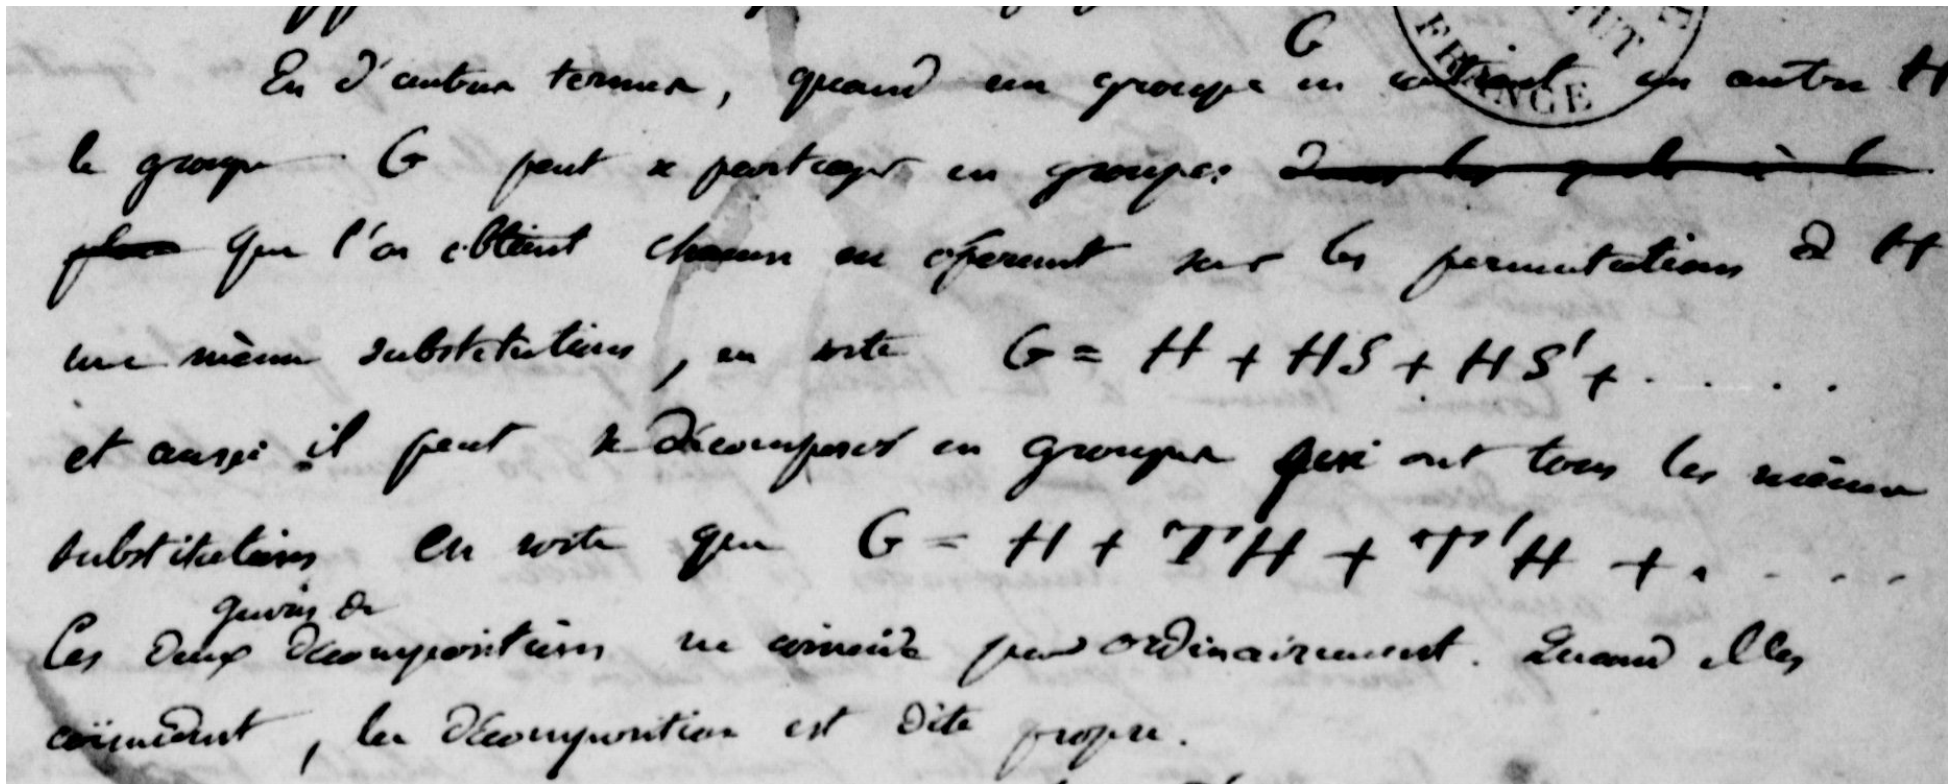 G
En d'autres termes, quand un groupe en contient un autre H
le groupe G peut se partager en groupes
que l'on obtient chacun en opérant sur les permutations de H
une même substitution, en sorte G = H + HS + HS' + . . . .
et aussi il peut se décomposer en groupes qui ont tous les mêmes
substitutions en sorte que G = H + TH + T'H + . . . .
genres de
Ces deux décompositions ne coincide pas ordinairement. Quand elles
coïncident, la décomposition est dite propre.
FRANCE